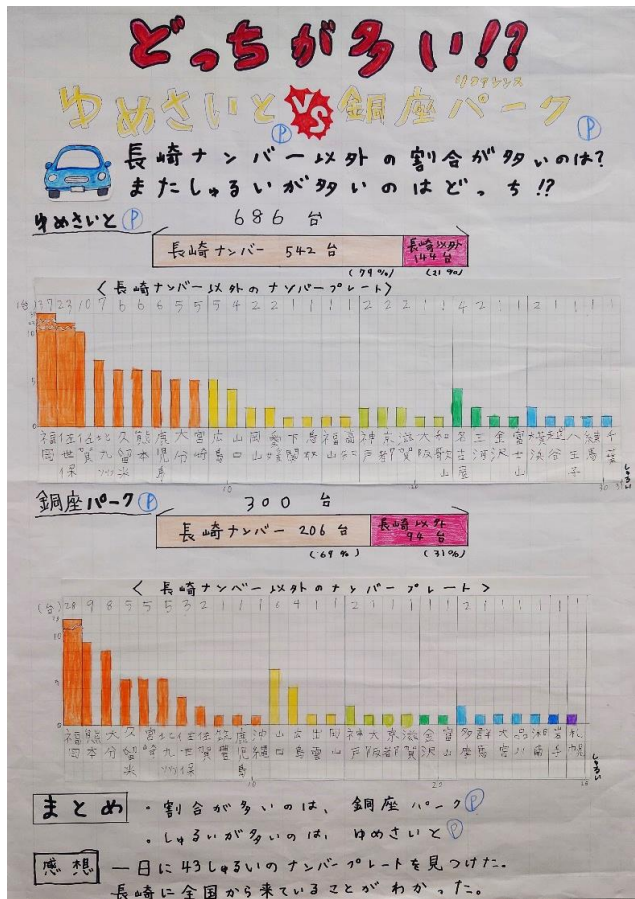 どっちが多い!?
リファレンス
ゆめさいとⓅ VS 銅座パークⓅ
長崎ナンバー以外の割合が多いのは?
またしゅるいが多いのはどっち!?
ゆめさいとⓅ 686 台
長崎ナンバー 542 台 長崎以外 144台
(79%) (21%)
<長崎ナンバー以外のナンバープレート>
福岡 佐世保 佐賀 北九州 久留米 熊本 鹿児島 大分 宮崎 広島 山口 岡山 愛媛 下関 鳥取 福山 高知 神戸 京都 滋賀 大阪 和歌山 名古屋 三河 金沢 富士山 横浜 八王子 練馬 千葉
10 20 30 31 しゅるい
銅座パークⓅ 300 台
長崎ナンバー 206 台 長崎以外 94台
(69%) (31%)
<長崎ナンバー以外のナンバープレート>
(台) 28 9 8 5 5 5 3 2 1 1 1 6 4 1 1 2 1 1 1 1 1 2 1 1 1 1 1 1
福岡 熊本 大分 久留米 宮崎 北九州 佐世保 佐賀 筑豊 鹿児島 沖縄 山口 広島 出雲 岡山 神戸 大阪 京都 滋賀 金沢 富山 多摩 群馬 大宮 品川 湘南 岩手 札幌
10 20 しゅるい
まとめ ・割合が多いのは、銅座パークⓅ
・しゅるいが多いのは、ゆめさいとⓅ
感想 一日に43しゅるいのナンバープレートを見つけた。
長崎に全国から来ていることがわかった。